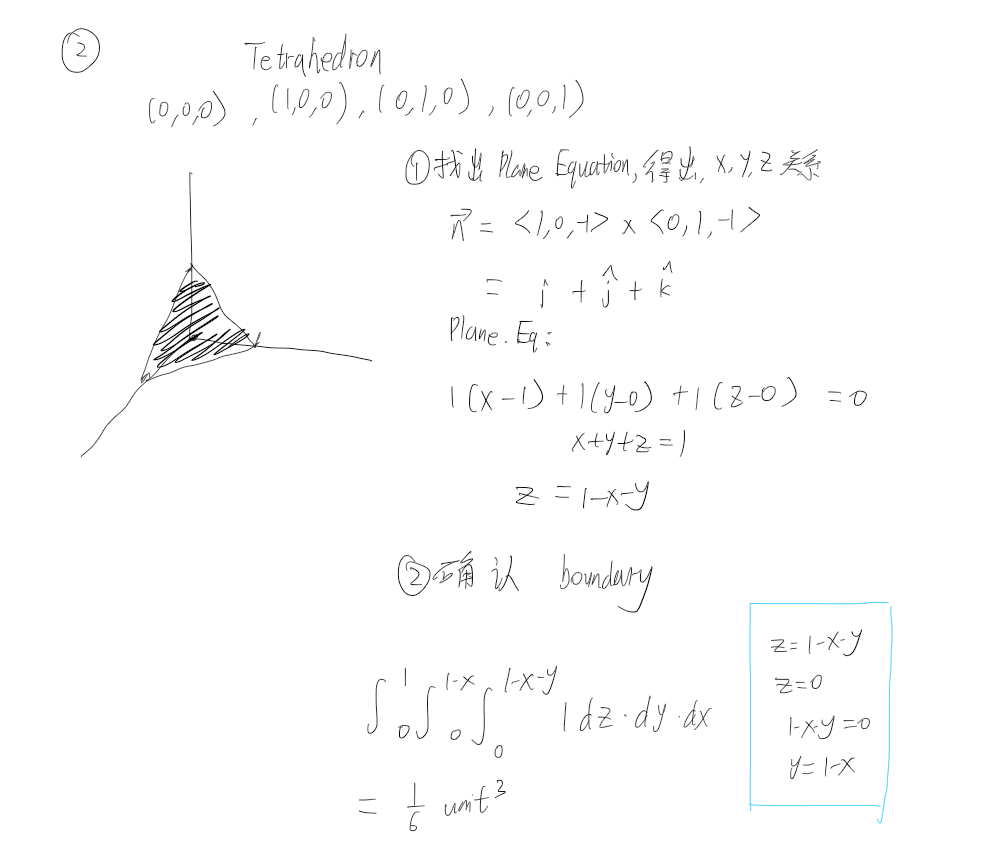 ②
Tetrahedron
(0,0,0) , (1,0,0) , (0,1,0) , (0,0,1)
①找出 Plane Equation,得出, x,y,z 关系
n⃗ = <1,0,-1> x <0,1,-1>
= i + ĵ + k̂
Plane. Eq:
1(x-1) + 1(y-0) + 1(z-0) = 0
x+y+z=1
z = 1-x-y
②确认 boundary
∫₀¹ ∫₀^(1-x) ∫₀^(1-x-y) 1 dz·dy·dx
= 1/6 unit³
z=1-x-y
z=0
1-x-y=0
y=1-x